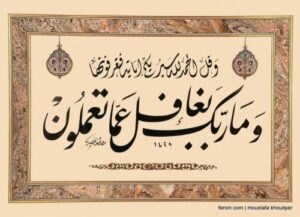 وقل الحمد لله سيريكم آياته فتعرفونها
وما ربك بغافل عما تعملون
١٤٢٩
fenon.com | moustafa khoudyer